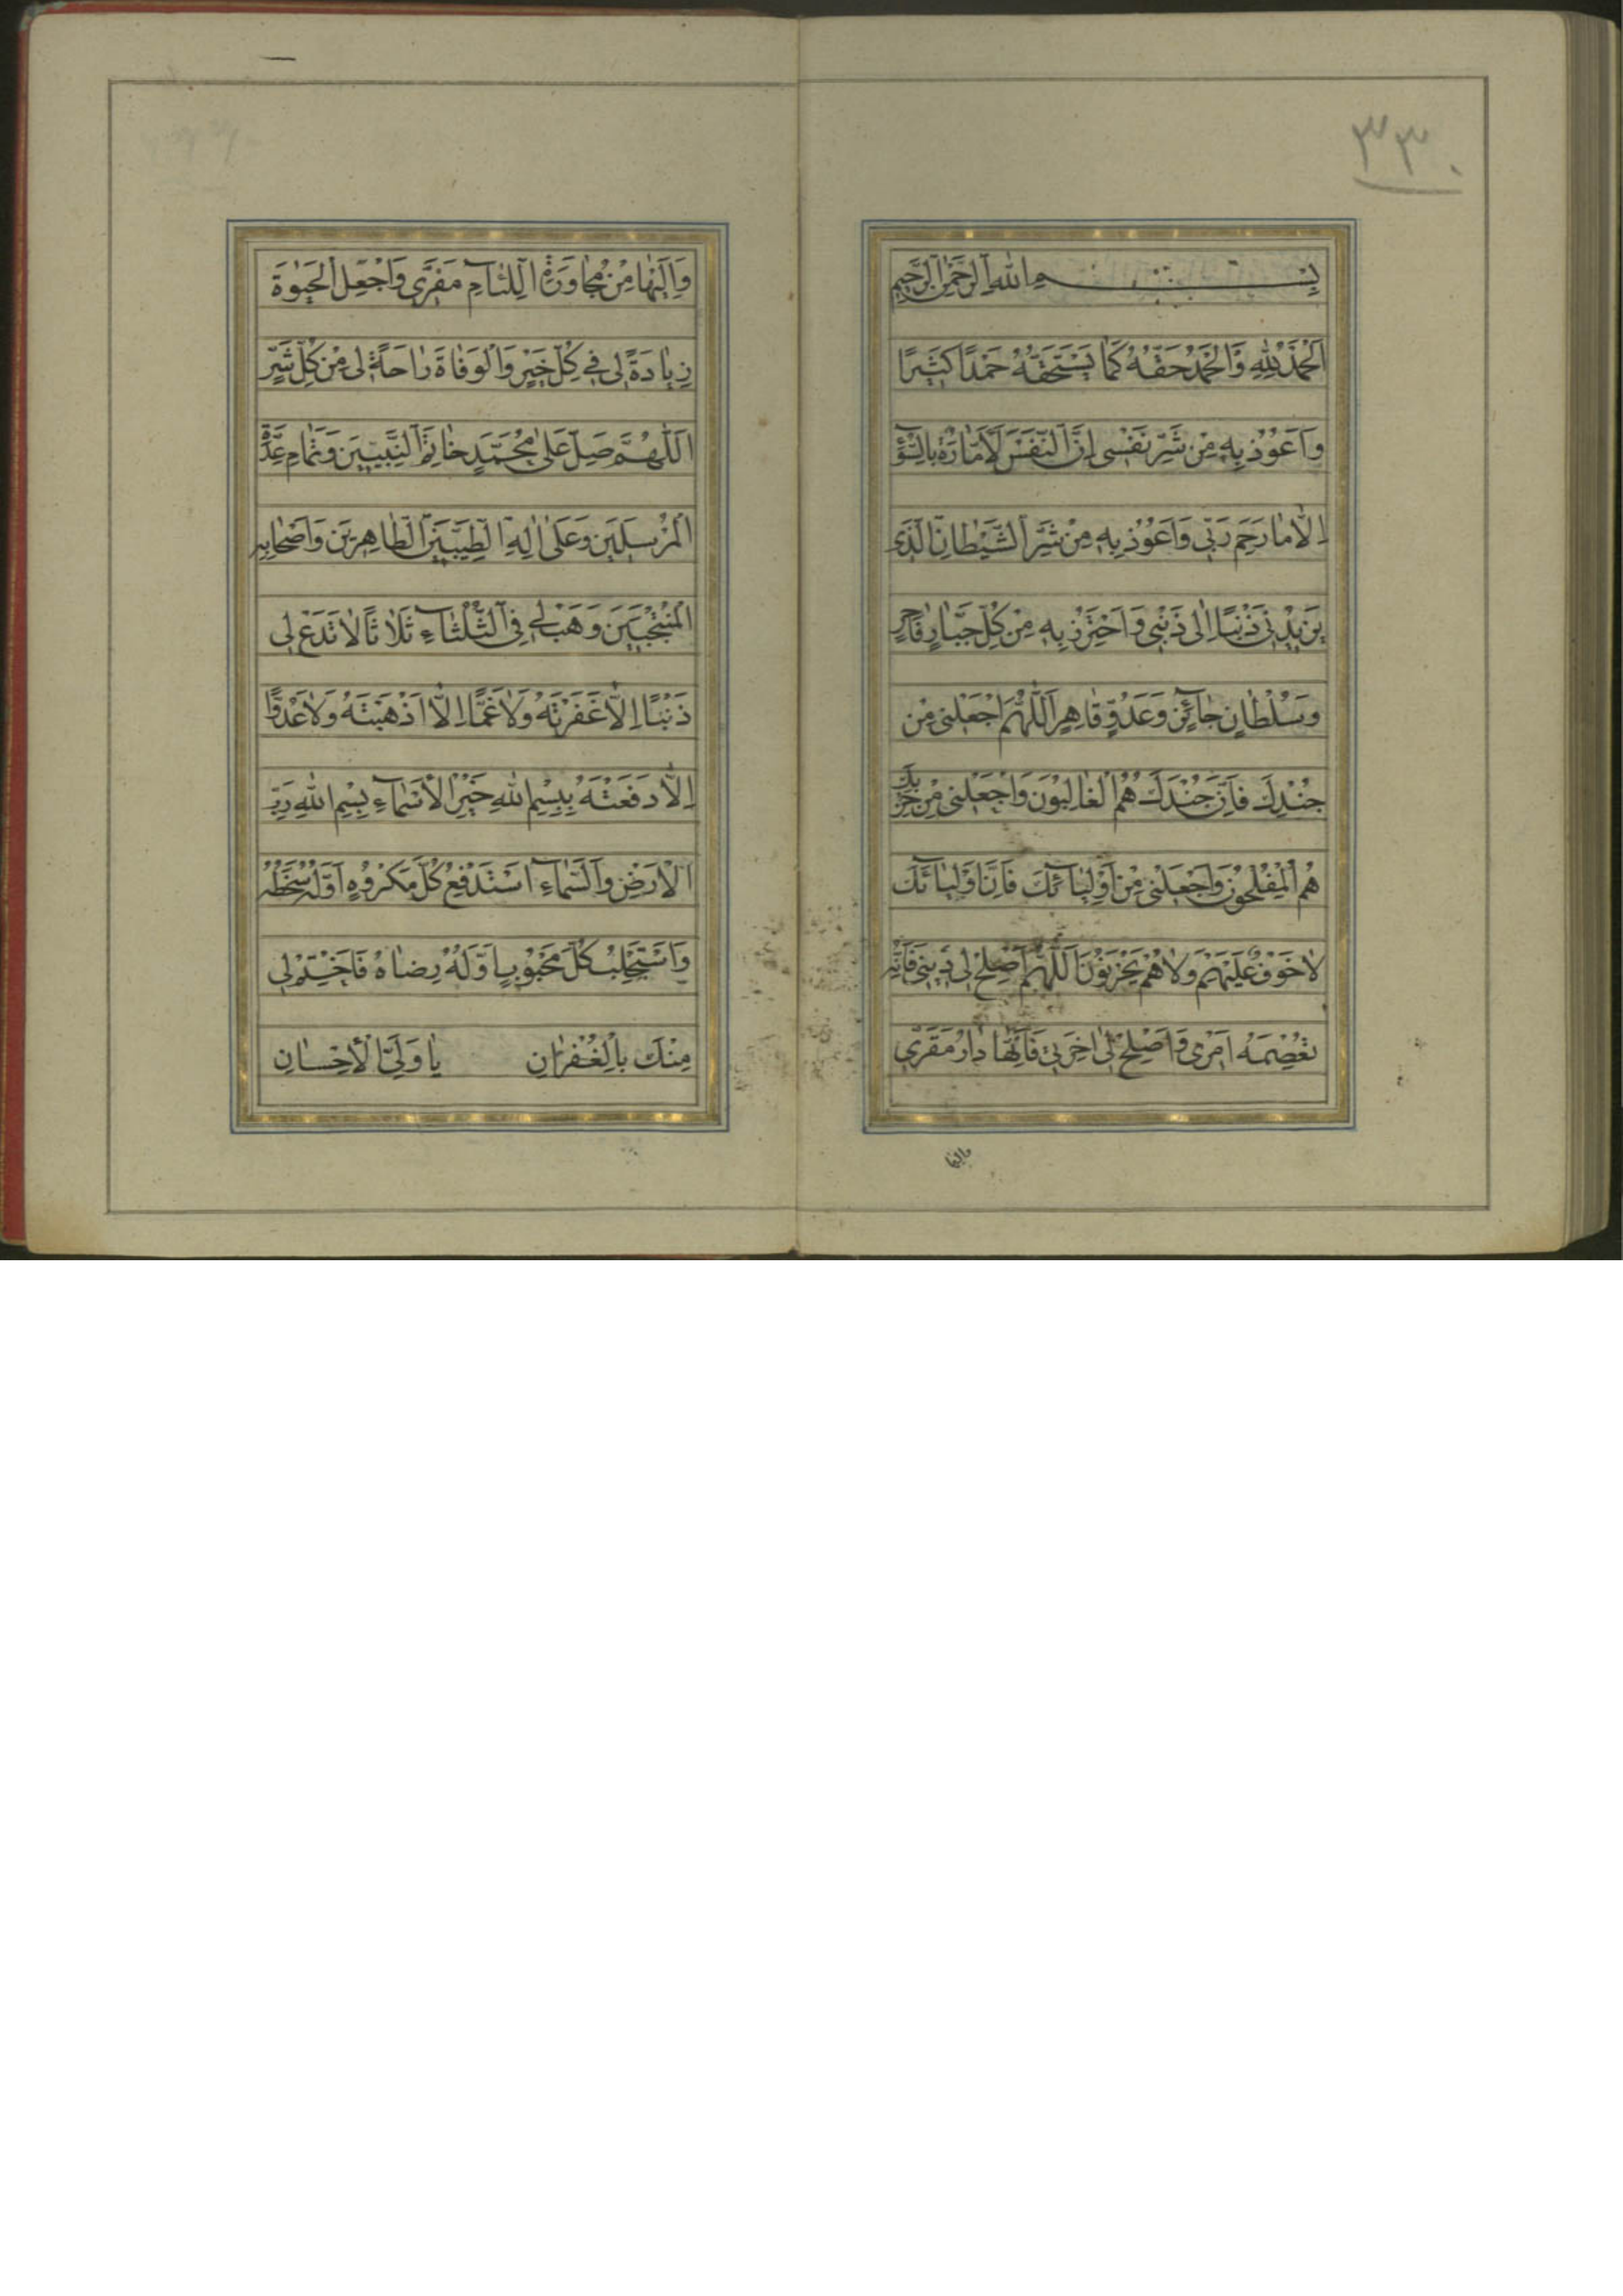 ٣٣٠
بِسْمِ اللهِ الرَّحْمٰنِ الرَّحِيمِ
اَلْحَمْدُ لِلّٰهِ وَالْحَمْدُ حَقُّهُ كَمَا يَسْتَحِقُّهُ حَمْدًا كَثِيرًا
وَاَعُوذُ بِهِ مِنْ شَرِّ نَفْسِى اِنَّ النَّفْسَ لَاَمَّارَةٌ بِالسُّوۤءِ
اِلَّا مَا رَحِمَ رَبِّى وَاَعُوذُ بِهِ مِنْ شَرِّ الشَّيْطَانِ الَّذِى
يَزِيدُنِى ذَنْبًا اِلٰى ذَنْبِى وَاَحْتَرِزُ بِهِ مِنْ كُلِّ جَبَّارٍ فَاجِرٍ
وَسُلْطَانٍ جَاۤئِرٍ وَعَدُوٍّ قَاهِرٍ اَللّٰهُمَّ اجْعَلْنِى مِنْ
جُنْدِكَ فَاِنَّ جُنْدَكَ هُمُ الْغَالِبُونَ وَاجْعَلْنِى مِنْ حِزْبِكَ
هُمُ الْمُفْلِحُونَ وَاجْعَلْنِى مِنْ اَوْلِيَاۤئِكَ فَاِنَّ اَوْلِيَاۤئَكَ
لَا خَوْفٌ عَلَيْهِمْ وَلَا هُمْ يَحْزَنُونَ اَللّٰهُمَّ اَصْلِحْ لِى دِينِى فَاِنَّهُ
عِصْمَةُ اَمْرِى وَاَصْلِحْ لِى اٰخِرَتِى فَاِنَّهَا دَارُ مَقَرِّى
واليها
وَاِلَيْهَا مِنْ مُجَاوَرَةِ اللِّئَاۤمِ مَفَرِّى وَاجْعَلِ الْحَيٰوةَ
زِيَادَةً لِى فِى كُلِّ خَيْرٍ وَالْوَفَاةَ رَاحَةً لِى مِنْ كُلِّ شَرٍّ
اَللّٰهُمَّ صَلِّ عَلٰى مُحَمَّدٍ خَاتَمِ النَّبِيِّينَ وَتَمَامِ عِدَّةِ
الْمُرْسَلِينَ وَعَلٰى اٰلِهِ الطَّيِّبِينَ الطَّاهِرِينَ وَاَصْحَابِهِ
الْمُنْتَجَبِينَ وَهَبْ لِى فِى الثَّلٰثَاۤءِ ثَلَاثًا لَا تَدَعْ لِى
ذَنْبًا اِلَّا غَفَرْتَهُ وَلَا غَمًّا اِلَّا اَذْهَبْتَهُ وَلَا عَدُوًّا
اِلَّا دَفَعْتَهُ بِبِسْمِ اللهِ خَيْرِ الْاَسْمَاۤءِ بِسْمِ اللهِ رَبِّ
الْاَرْضِ وَالسَّمَاۤءِ اَسْتَدْفِعُ كُلَّ مَكْرُوهٍ اَوَّلُهُ سَخَطُهُ
وَاَسْتَجْلِبُ كُلَّ مَحْبُوبٍ اَوَّلُهُ رِضَاهُ فَاخْتِمْ لِى
مِنْكَ بِالْغُفْرَانِ يَا وَلِىَّ الْاِحْسَانِ